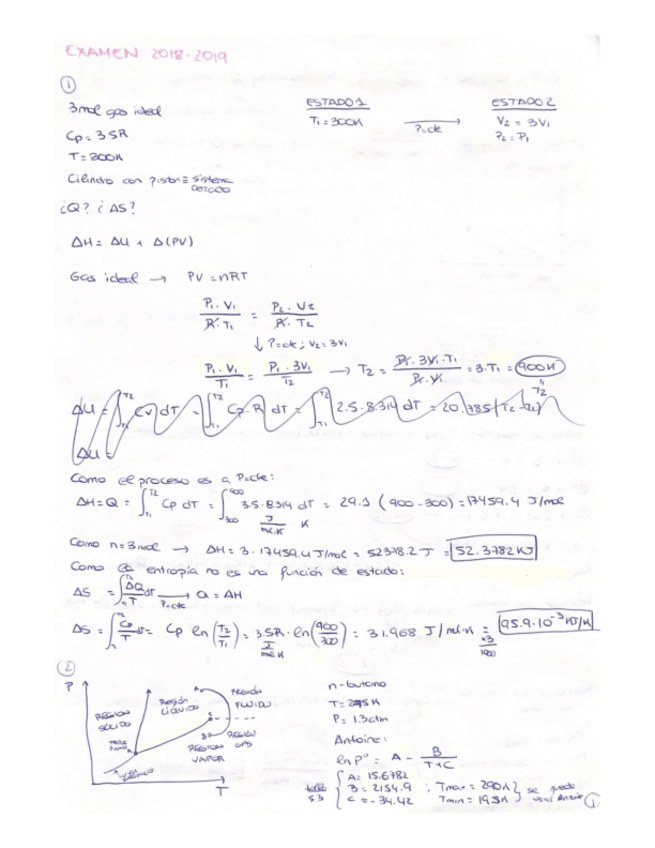 EXAMEN 2018-2019
①
3mol gas ideal
Cp = 3.5R
T = 300K
Cilindro con piston ≡ sistema cerrado
¿Q? ¿ΔS?
ESTADO 1
T₁ = 300K
P=cte
ESTADO 2
V₂ = 3V₁
P₂ = P₁
ΔH = ΔU + Δ(PV)
Gas ideal → PV = nRT
P₁·V₁ / R·T₁ = P₂·V₂ / R·T₂
↓ P=cte ; V₂ = 3V₁
P₁·V₁ / T₁ = P₁·3V₁ / T₂ → T₂ = P₁·3V₁·T₁ / P₁·V₁ = 3·T₁ = 900K
T₂
ΔU = ∫ Cv dT = ∫ Cp-R dT = ∫ 2.5·8.314 dT = 20.785 (T₂-T₁)
ΔU =
Como el proceso es a P=cte:
ΔH = Q = ∫ Cp dT = ∫ 3.5·8.314 dT = 29.1 (900-300) = 17459.4 J/mol
J/mol·K K
Como n=3mol → ΔH = 3·17459.4 J/mol = 52378.2 J = 52.3782 KJ
Como la entropía no es una función de estado:
ΔS = ∫ ΔQ/T dT P=cte → Q = ΔH
ΔS = ∫ Cp/T dT = Cp ln (T₂/T₁) = 3.5R · ln (900/300) = 31.968 J/mol·K = 95.9·10⁻³ KJ/K
J/mol K
×3
1000
②
P
T
REGION SÓLIDO
Región LÍQUIDO
REGIÓN FLUIDO
REGIÓN GAS
REGIÓN VAPOR
n-butano
T = 275K
P = 1.3atm
Antoine:
ln P° = A - B / T+C
A = 15.6782
B = 2154.9 ; Tmax = 290K
C = -34.42 Tmin = 195K
se puede usar Antoine
①